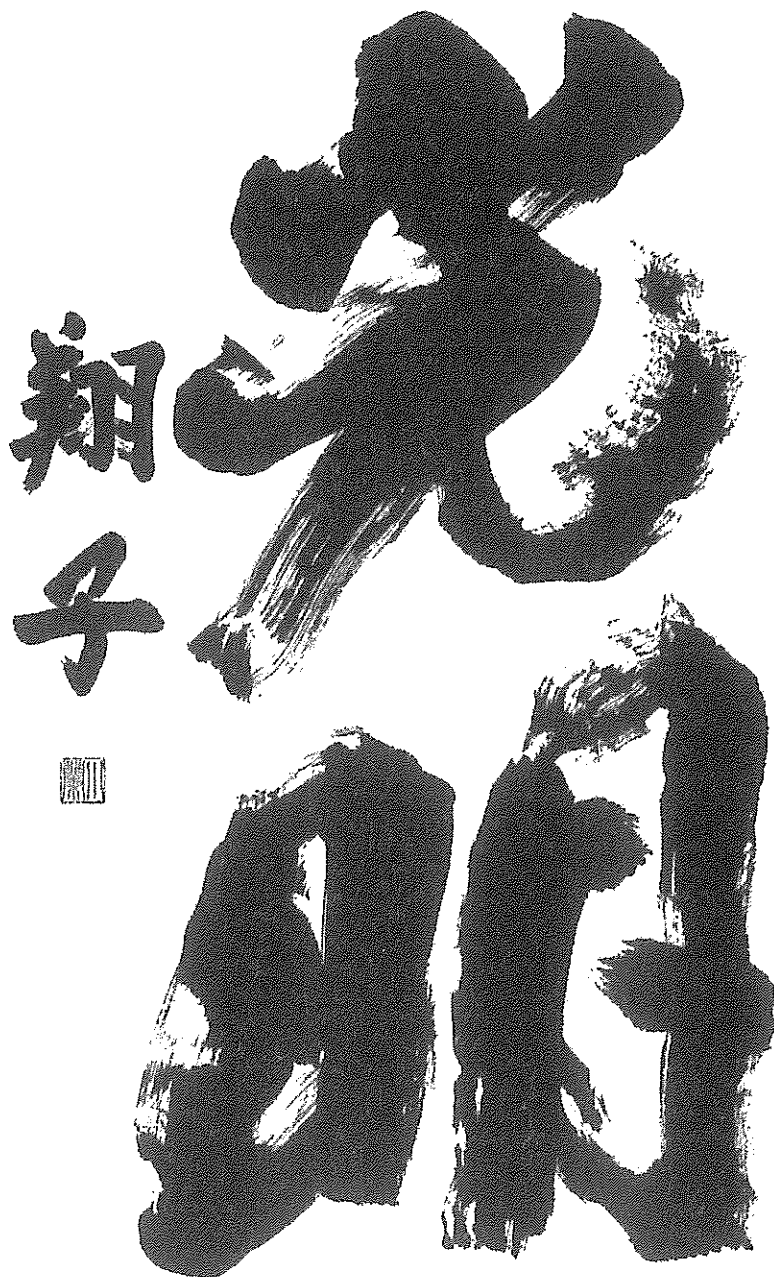 光明
翔子